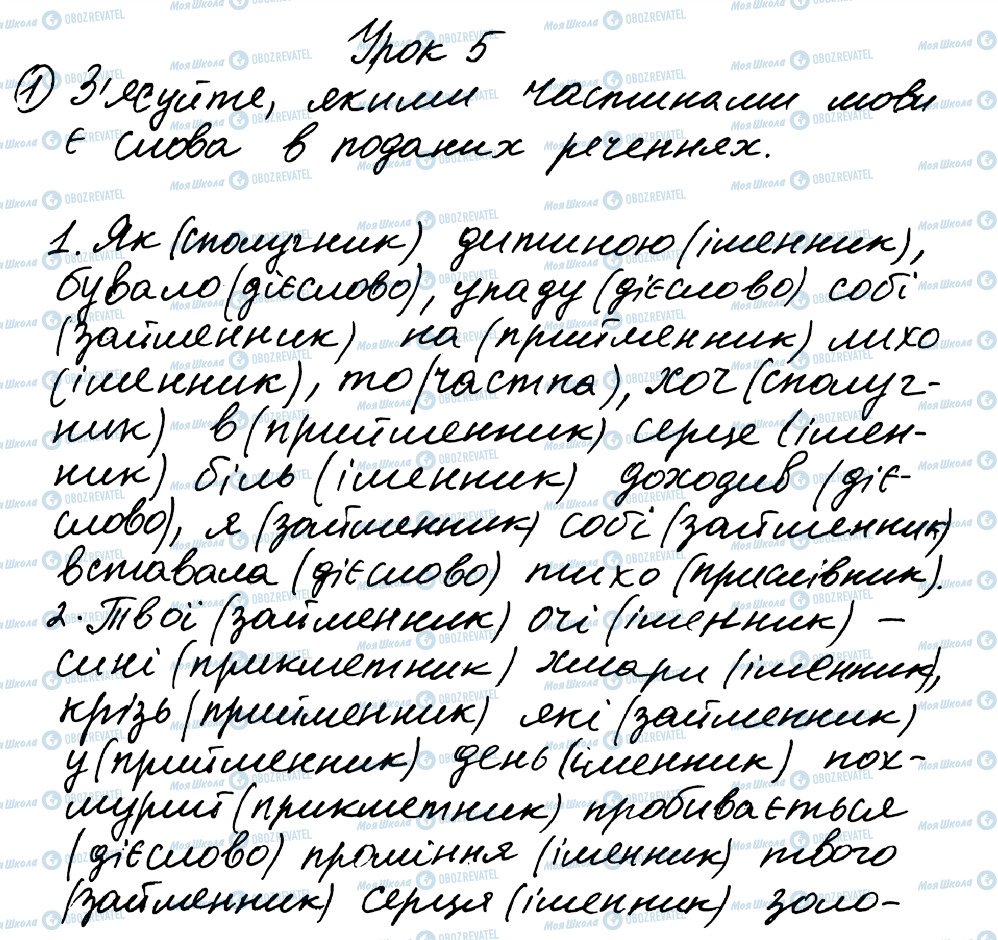 Урок 5
① З'ясуйте, якими частинами мови
є слова в поданих реченнях.
1. Як (сполучник) дитиною (іменник),
бувало (дієслово), упаду (дієслово) собі
(займенник) на (прийменник) лихо
(іменник), то (частка), хоч (сполуч-
ник) в (прийменник) серце (імен-
ник) біль (іменник) доходив (діє-
слово), я (займенник) собі (займенник)
вставала (дієслово) тихо (прислівник).
2. Твої (займенник) очі (іменник) –
сині (прикметник) хмари (іменник),
крізь (прийменник) які (займенник)
у (прийменник) день (іменник) пох-
мурий (прикметник) пробивається
(дієслово) проміння (іменник) твого
(займенник) серця (іменник) золо-